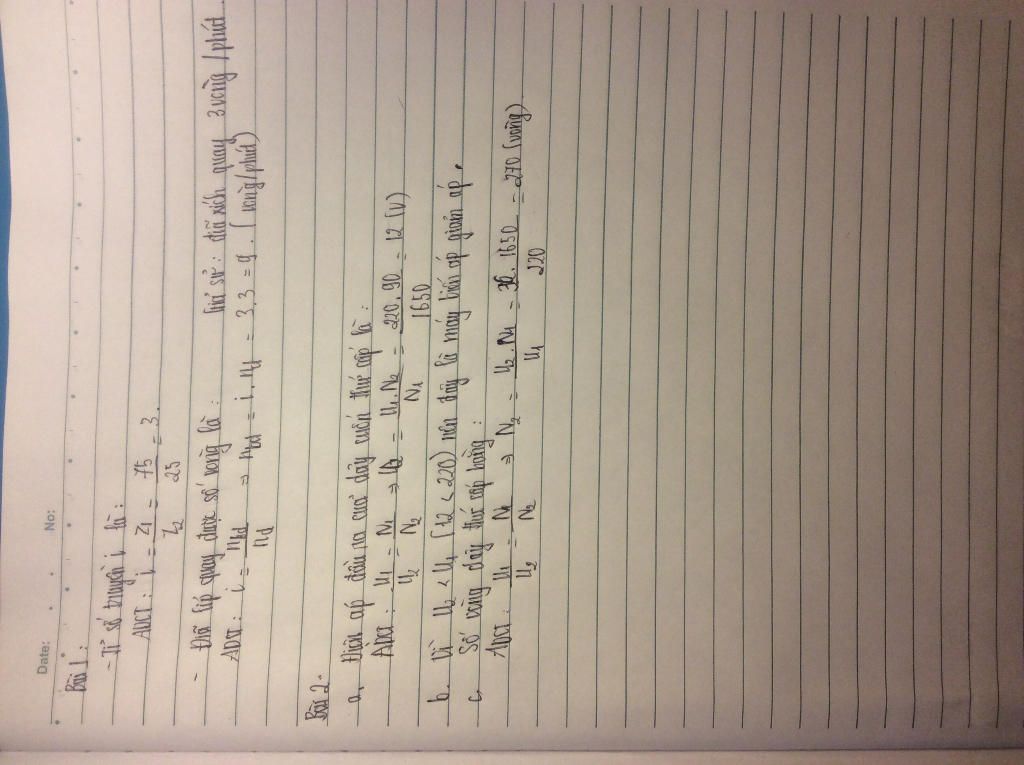 Date: No:
Bài 1:
- Tỉ số truyền i là:
ADCT: i = Z1/Z2 = 75/25 = 3.
- Đĩa líp quay được số vòng là: Giả sử: đĩa xích quay 3 vòng/phút.
ADCT: i = nbd/nd ⇒ nbd = i . nd = 3.3 = 9. (vòng/phút)
Bài 2.
a, Điện áp đầu ra của dây cuốn thứ cấp là:
ADCT: U1/U2 = N1/N2 ⇒ U2 = U1.N2/N1 = 220.90/1650 = 12 (V)
b. Vì U2 < U1 (12 < 220) nên đây là máy biến áp giảm áp.
c. Số vòng dây thứ cấp bằng:
ADCT: U1/U2 = N1/N2 ⇒ N2 = U2.N1/U1 = . 1650/220 = 270 (vòng)